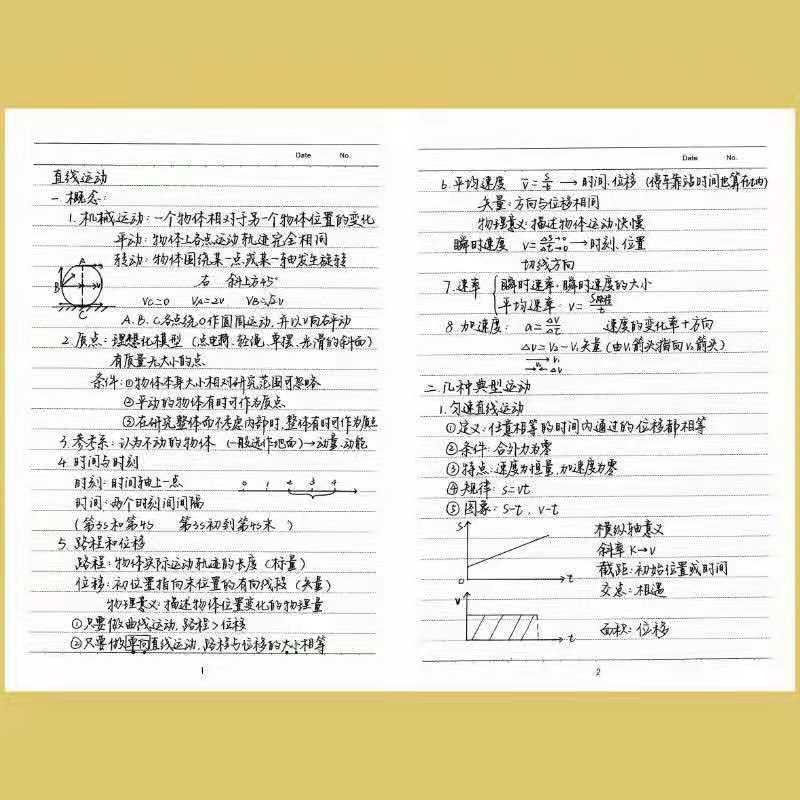 Date No.
直线运动
一.概念:
1.机械运动:一个物体相对于另一个物体位置的变化
平动:物体上各点运动轨迹完全相同
转动:物体围绕某一点或某一轴发生旋转
右 斜上方45°
A
B
C
Vc=0 VA=2V VB=√2V
A、B、C各点绕O作圆周运动,并以V向右平动
2.质点:理想化模型(点电荷、轻绳、单摆、光滑的斜面)
有质量无大小的点
条件:①物体本身大小相对研究范围可忽略
②平动的物体有时可作为质点
③在研究整体而不考虑内部时,整体有时可作为质点
3.参考系:认为不动的物体(一般选作地面)→动量、动能
4.时间与时刻
时刻:时间轴上一点
0 1 2 3 4
时间:两个时刻间间隔
(第5s和第4s 第3s初到第4s末)
5.路程和位移
路程:物体实际运动轨迹的长度(标量)
位移:初位置指向末位置的有向线段(矢量)
物理意义:描述物体位置变化的物理量
①只要做曲线运动,路程>位移
②只要做单向直线运动,路程与位移的大小相等
1
Date No.
6.平均速度 v̄=s/t→时间、位移(停车靠站时间也算在t内)
矢量:方向与位移相同
物理意义:描述物体运动快慢
瞬时速度 v=Δs→0/Δt→0→时刻、位置
切线方向
7.速率
瞬时速率:瞬时速度的大小
平均速率:v=s路程/t
8.加速度: a=Δv/Δt 速度的变化率+方向
Δv=V₂-V₁矢量(由V₁箭头指向V₂箭头)
V₁
V₂ ΔV
二.几种典型运动
1.匀速直线运动
①定义:任意相等的时间内通过的位移都相等
②条件:合外力为零
③特点:速度为恒量,加速度为零
④规律:s=vt
⑤图象:s-t、v-t
S
0
t
横纵轴意义
斜率K→v
截距:初始位置或时间
交点:相遇
V
t
面积:位移
2